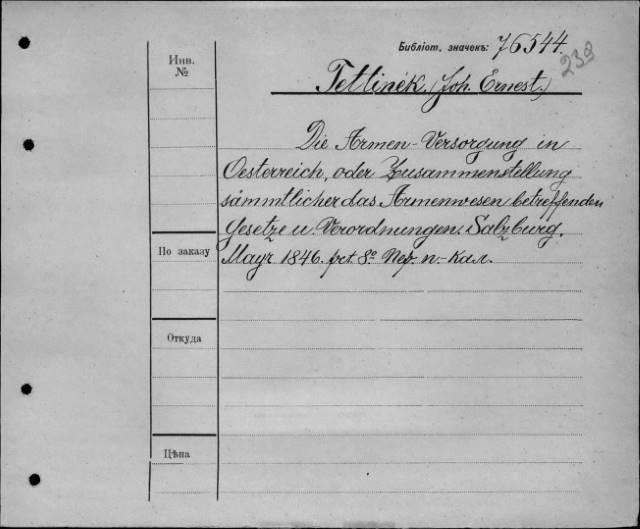 Библіот. значекъ: 76544.
239
Инв.
№
Tetlinek, (Joh. Ernest.)
Die Armen-Versorgung in
Oesterreich, oder Zusammenstellung
sämmtlicher das Armenwesen betreffenden
Gesetze u. Verordnungen. Salzburg.
По заказу
Mayr 1846. 8º Пер. п.-кал.
Откуда
Цѣна